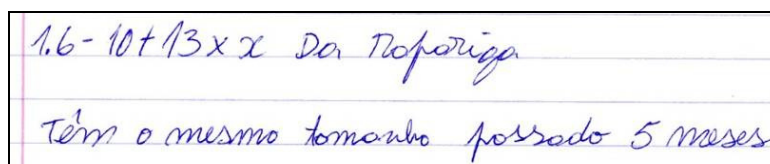 1.6- 10+13 x x Da Rapariga
Têm o mesmo tamanho passado 5 meses